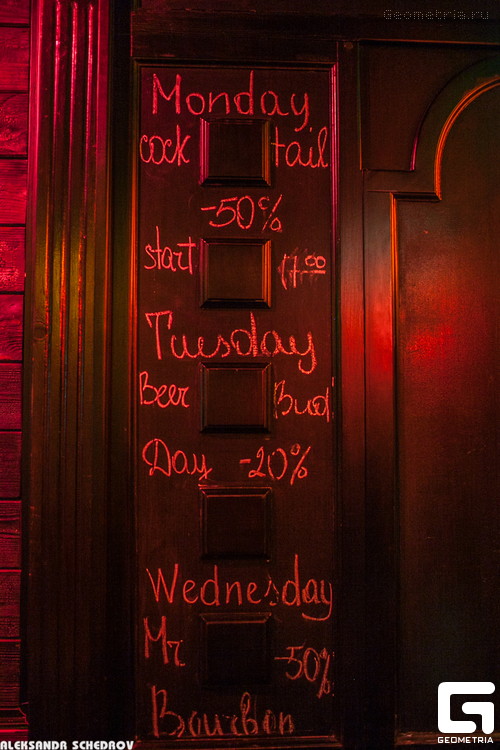 Geometria.ru
Monday
cock tail
-50%
start 17.00
Tuesday
Beer Bud
Day -20%
Wednesday
Mr -50%
Bourbon
ALEKSANDR SCHEDROV
GEOMETRIA